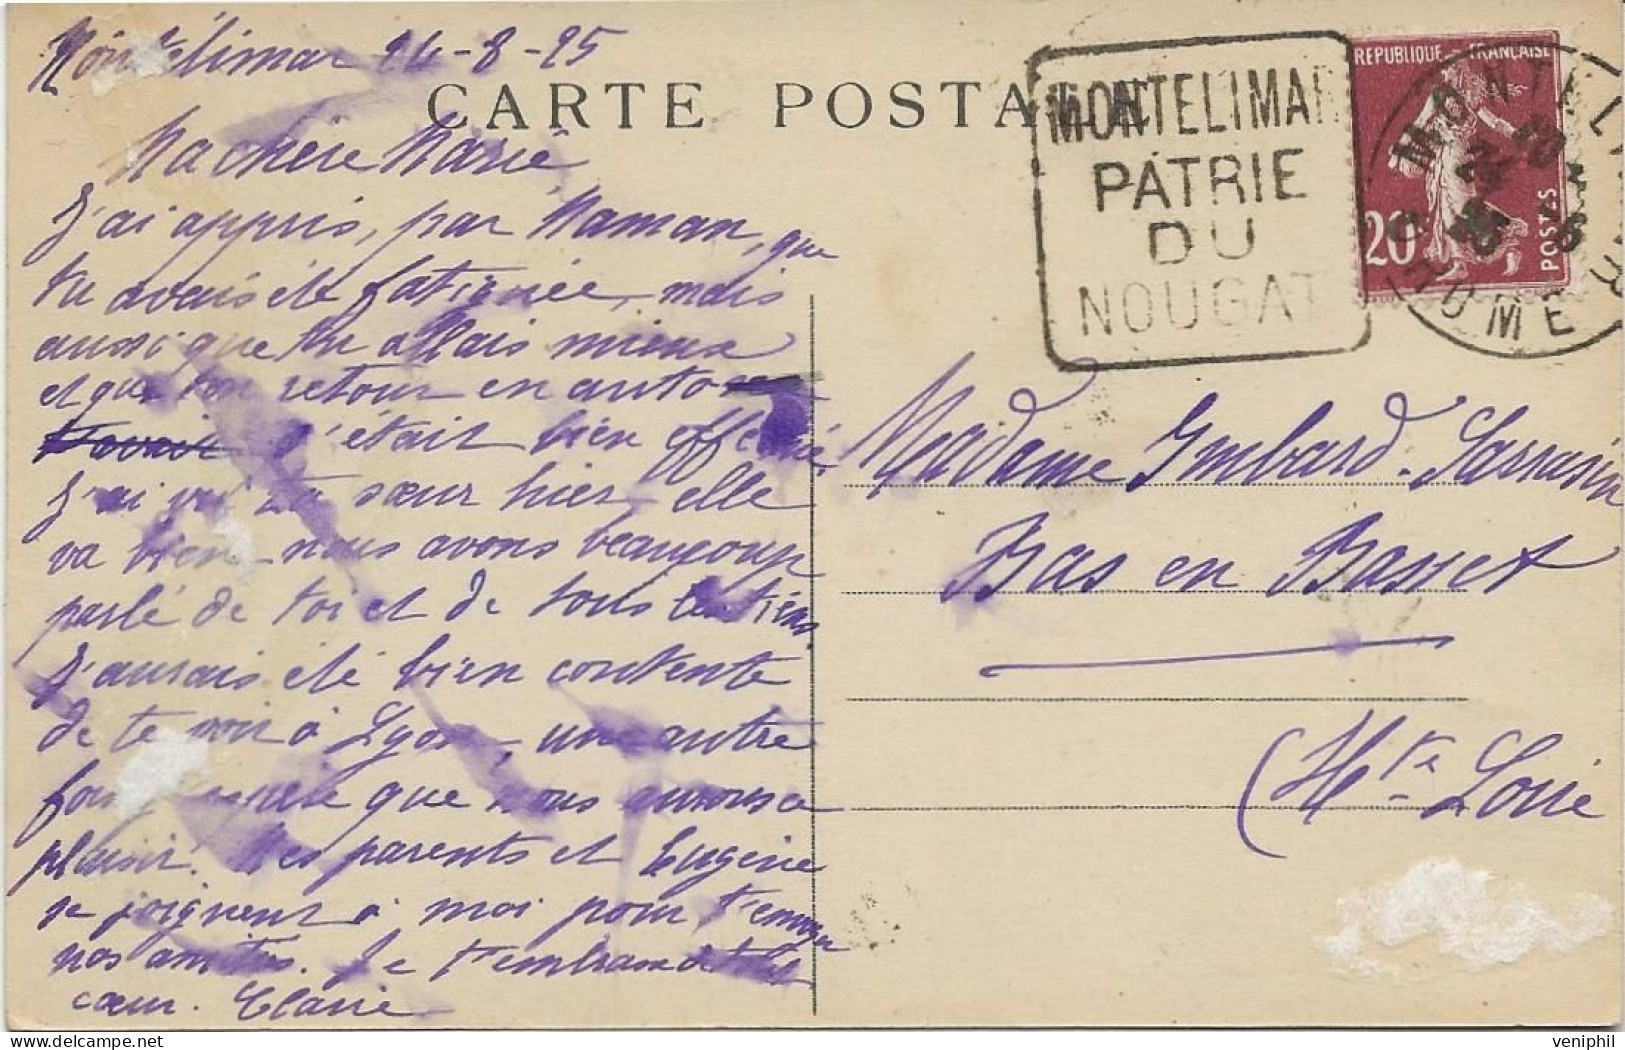 Montélimar 24-8-25
CARTE POSTALE
MONTELIMAR
PATRIE
DU
NOUGAT
REPUBLIQUE FRANÇAISE
20
POSTES
MONTELIMAR
DROME
Ma chère Marie
J'ai appris, par Maman, que
tu avais été fatiguée, mais
aussi que tu allais mieux
et que ton retour en auto
s'était bien effectué.
J'ai vu ta sœur hier, elle
va bien nous avons beaucoup
parlé de toi et de tous les tiens
J'aurais été bien contente
de te voir à Lyon, une autre
fois que nous aurons ce
plaisir. Mes parents et Eugène
se joignent à moi pour t'envoyer
nos amitiés. Je t'embrasse de tout
cœur. Claire
Madame Imbard-Sarrasin
Bas en Basset
(Hte Loire
veniphil